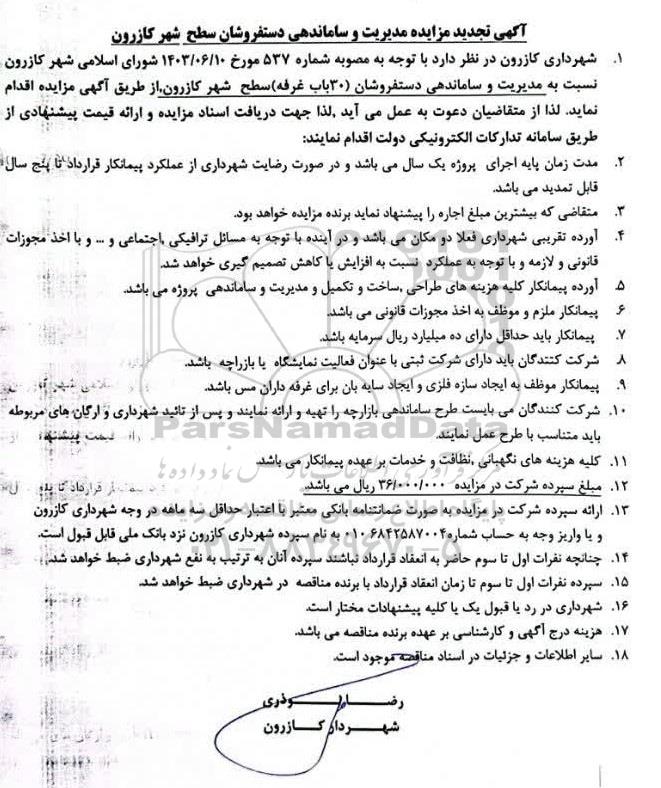 آگهی تجدید مزایده مدیریت و ساماندهی دستفروشان سطح شهر کازرون
۱. شهرداری کازرون در نظر دارد با توجه به مصوبه شماره ۵۳۷ مورخ ۱۴۰۳/۰۶/۱۰ شورای اسلامی شهر کازرون
نسبت به مدیریت و ساماندهی دستفروشان (۳۰باب غرفه)سطح شهر کازرون,از طریق آگهی مزایده اقدام
نماید. لذا از متقاضیان دعوت به عمل می آید ,لذا جهت دریافت اسناد مزایده و ارائه قیمت پیشنهادی از
طریق سامانه تدارکات الکترونیکی دولت اقدام نمایند:
۲. مدت زمان پایه اجرای پروژه یک سال می باشد و در صورت رضایت شهرداری از عملکرد پیمانکار قرارداد تا پنج سال
قابل تمدید می باشد.
۳. متقاضی که بیشترین مبلغ اجاره را پیشنهاد نماید برنده مزایده خواهد بود.
۴. آورده تقریبی شهرداری فعلا دو مکان می باشد و در آینده با توجه به مسائل ترافیکی ,اجتماعی و ... و با اخذ مجوزات
قانونی و لازمه و با توجه به عملکرد نسبت به افزایش یا کاهش تصمیم گیری خواهد شد.
۵. آورده پیمانکار کلیه هزینه های طراحی ,ساخت و تکمیل و مدیریت و ساماندهی پروژه می باشد.
۶. پیمانکار ملزم و موظف به اخذ مجوزات قانونی می باشد.
۷. پیمانکار باید حداقل دارای ده میلیارد ریال سرمایه باشد.
۸. شرکت کنندگان باید دارای شرکت ثبتی با عنوان فعالیت نمایشگاه یا بازراچه باشد.
۹. پیمانکار موظف به ایجاد سازه فلزی و ایجاد سایه بان برای غرفه داران مس باشد.
۱۰. شرکت کنندگان می بایست طرح ساماندهی بازارچه را تهیه و ارائه نمایند و پس از تائید شهرداری و ارگان های مربوطه
باید متناسب با طرح عمل نمایند.
۱۱. کلیه هزینه های نگهبانی ,نظافت و خدمات بر عهده پیمانکار می باشد.
۱۲. مبلغ سپرده شرکت در مزایده ۳۶/۰۰۰/۰۰۰ ریال می باشد.
۱۳. ارائه سپرده شرکت در مزایده به صورت ضمانتنامه بانکی معتبر با اعتبار حداقل سه ماهه در وجه شهرداری کازرون
و یا واریز وجه به حساب شماره۰۱۰۶۸۴۲۵۸۷۰۰۴ به نام سپرده شهرداری کازرون نزد بانک ملی قابل قبول است.
۱۴. چنانچه نفرات اول تا سوم حاضر به انعقاد قرارداد نباشند سپرده آنان به ترتیب به نفع شهرداری ضبط خواهد شد.
۱۵. سپرده نفرات اول تا سوم تا زمان انعقاد قرارداد با برنده مناقصه در شهرداری ضبط خواهد شد.
۱۶. شهرداری در رد یا قبول یک یا کلیه پیشنهادات مختار است.
۱۷. هزینه درج آگهی و کارشناسی بر عهده برنده مناقصه می باشد.
۱۸. سایر اطلاعات و جزئیات در اسناد مناقصه موجود است.
شهردار کازرون
ParsNamadData
۰۲۱-۸۸۳۴۹۶۷۰-۵